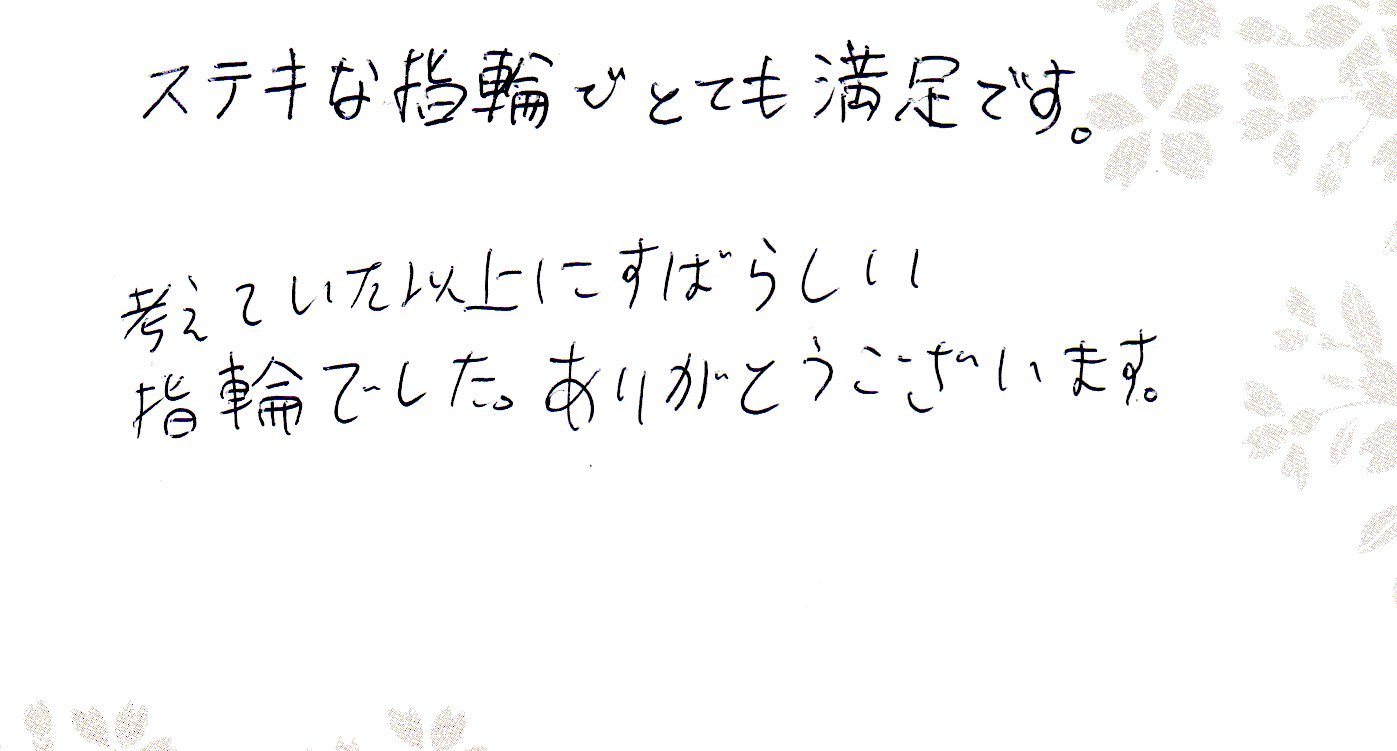 ステキな指輪でとても満足です。
考えていた以上にすばらしい
指輪でした。ありがとうございます。